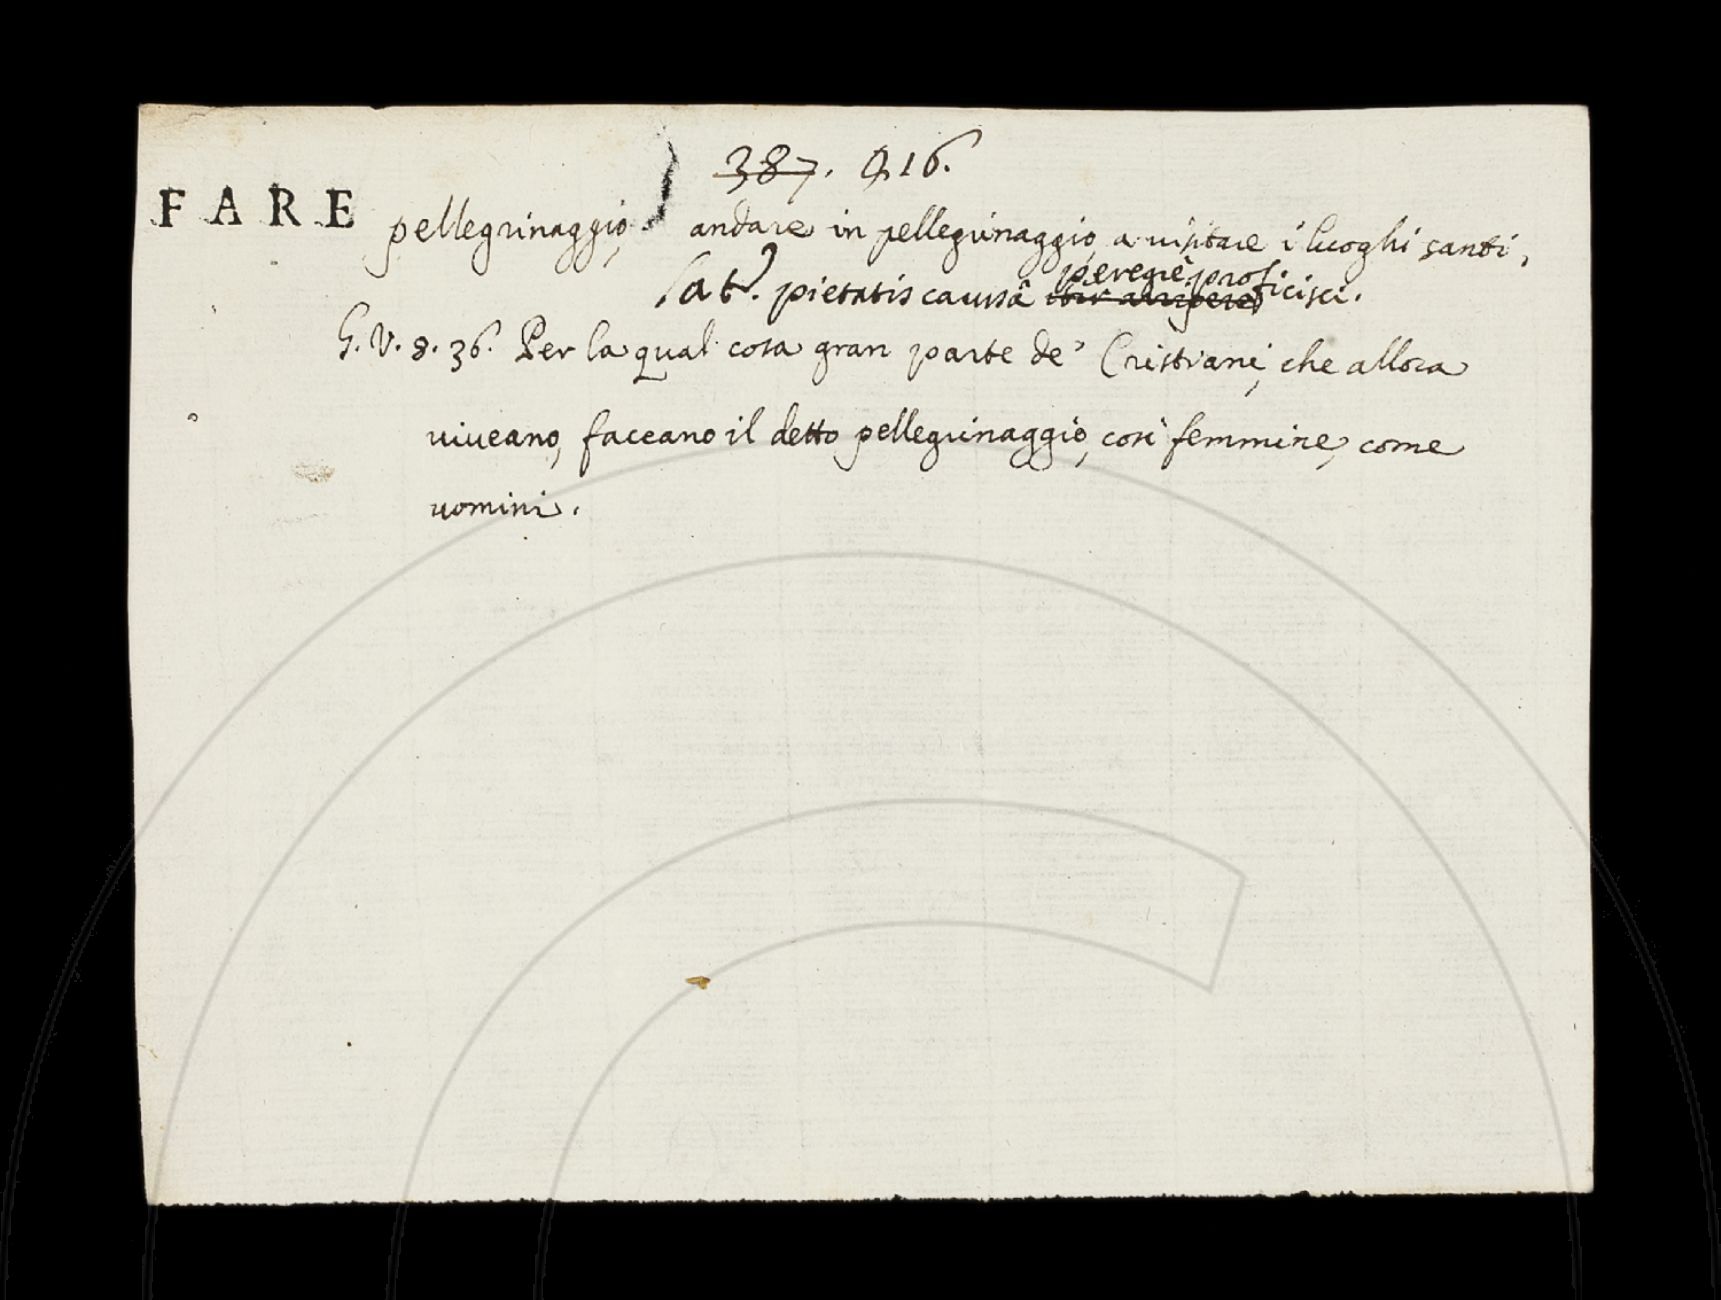 387. 916.
FARE pellegrinaggio, andare in pellegrinaggio, a visitare i luoghi santi,
peregrè proficisci.
lat. pietatis caussâ iter arripere
G. V. 8. 36. Per la qual cosa gran parte de' Cristiani, che allora
viveano, faceano il detto pellegrinaggio, così femmine, come
uomini.